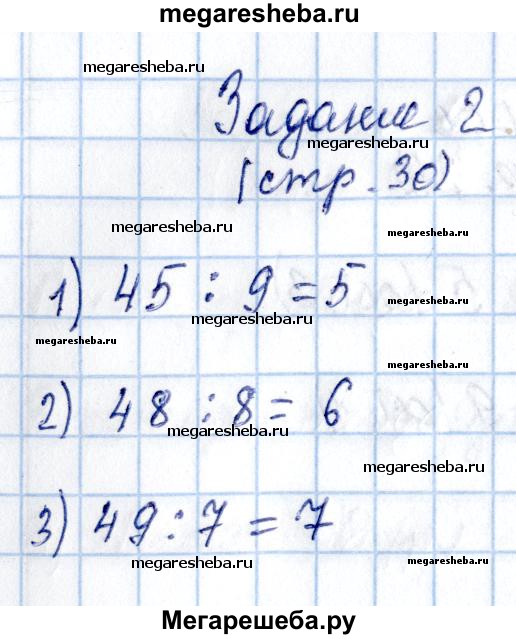 megaresheba.ru
megaresheba.ru
Задание 2
megaresheba.ru
(стр. 30)
megaresheba.ru
megaresheba.ru
1) 45 : 9 = 5
megaresheba.ru
megaresheba.ru
megaresheba.ru
megaresheba.ru
2) 48 : 8 = 6
megaresheba.ru
megaresheba.ru
3) 49 : 7 = 7
megaresheba.ru
megaresheba.ru
Мегарешеба.ру